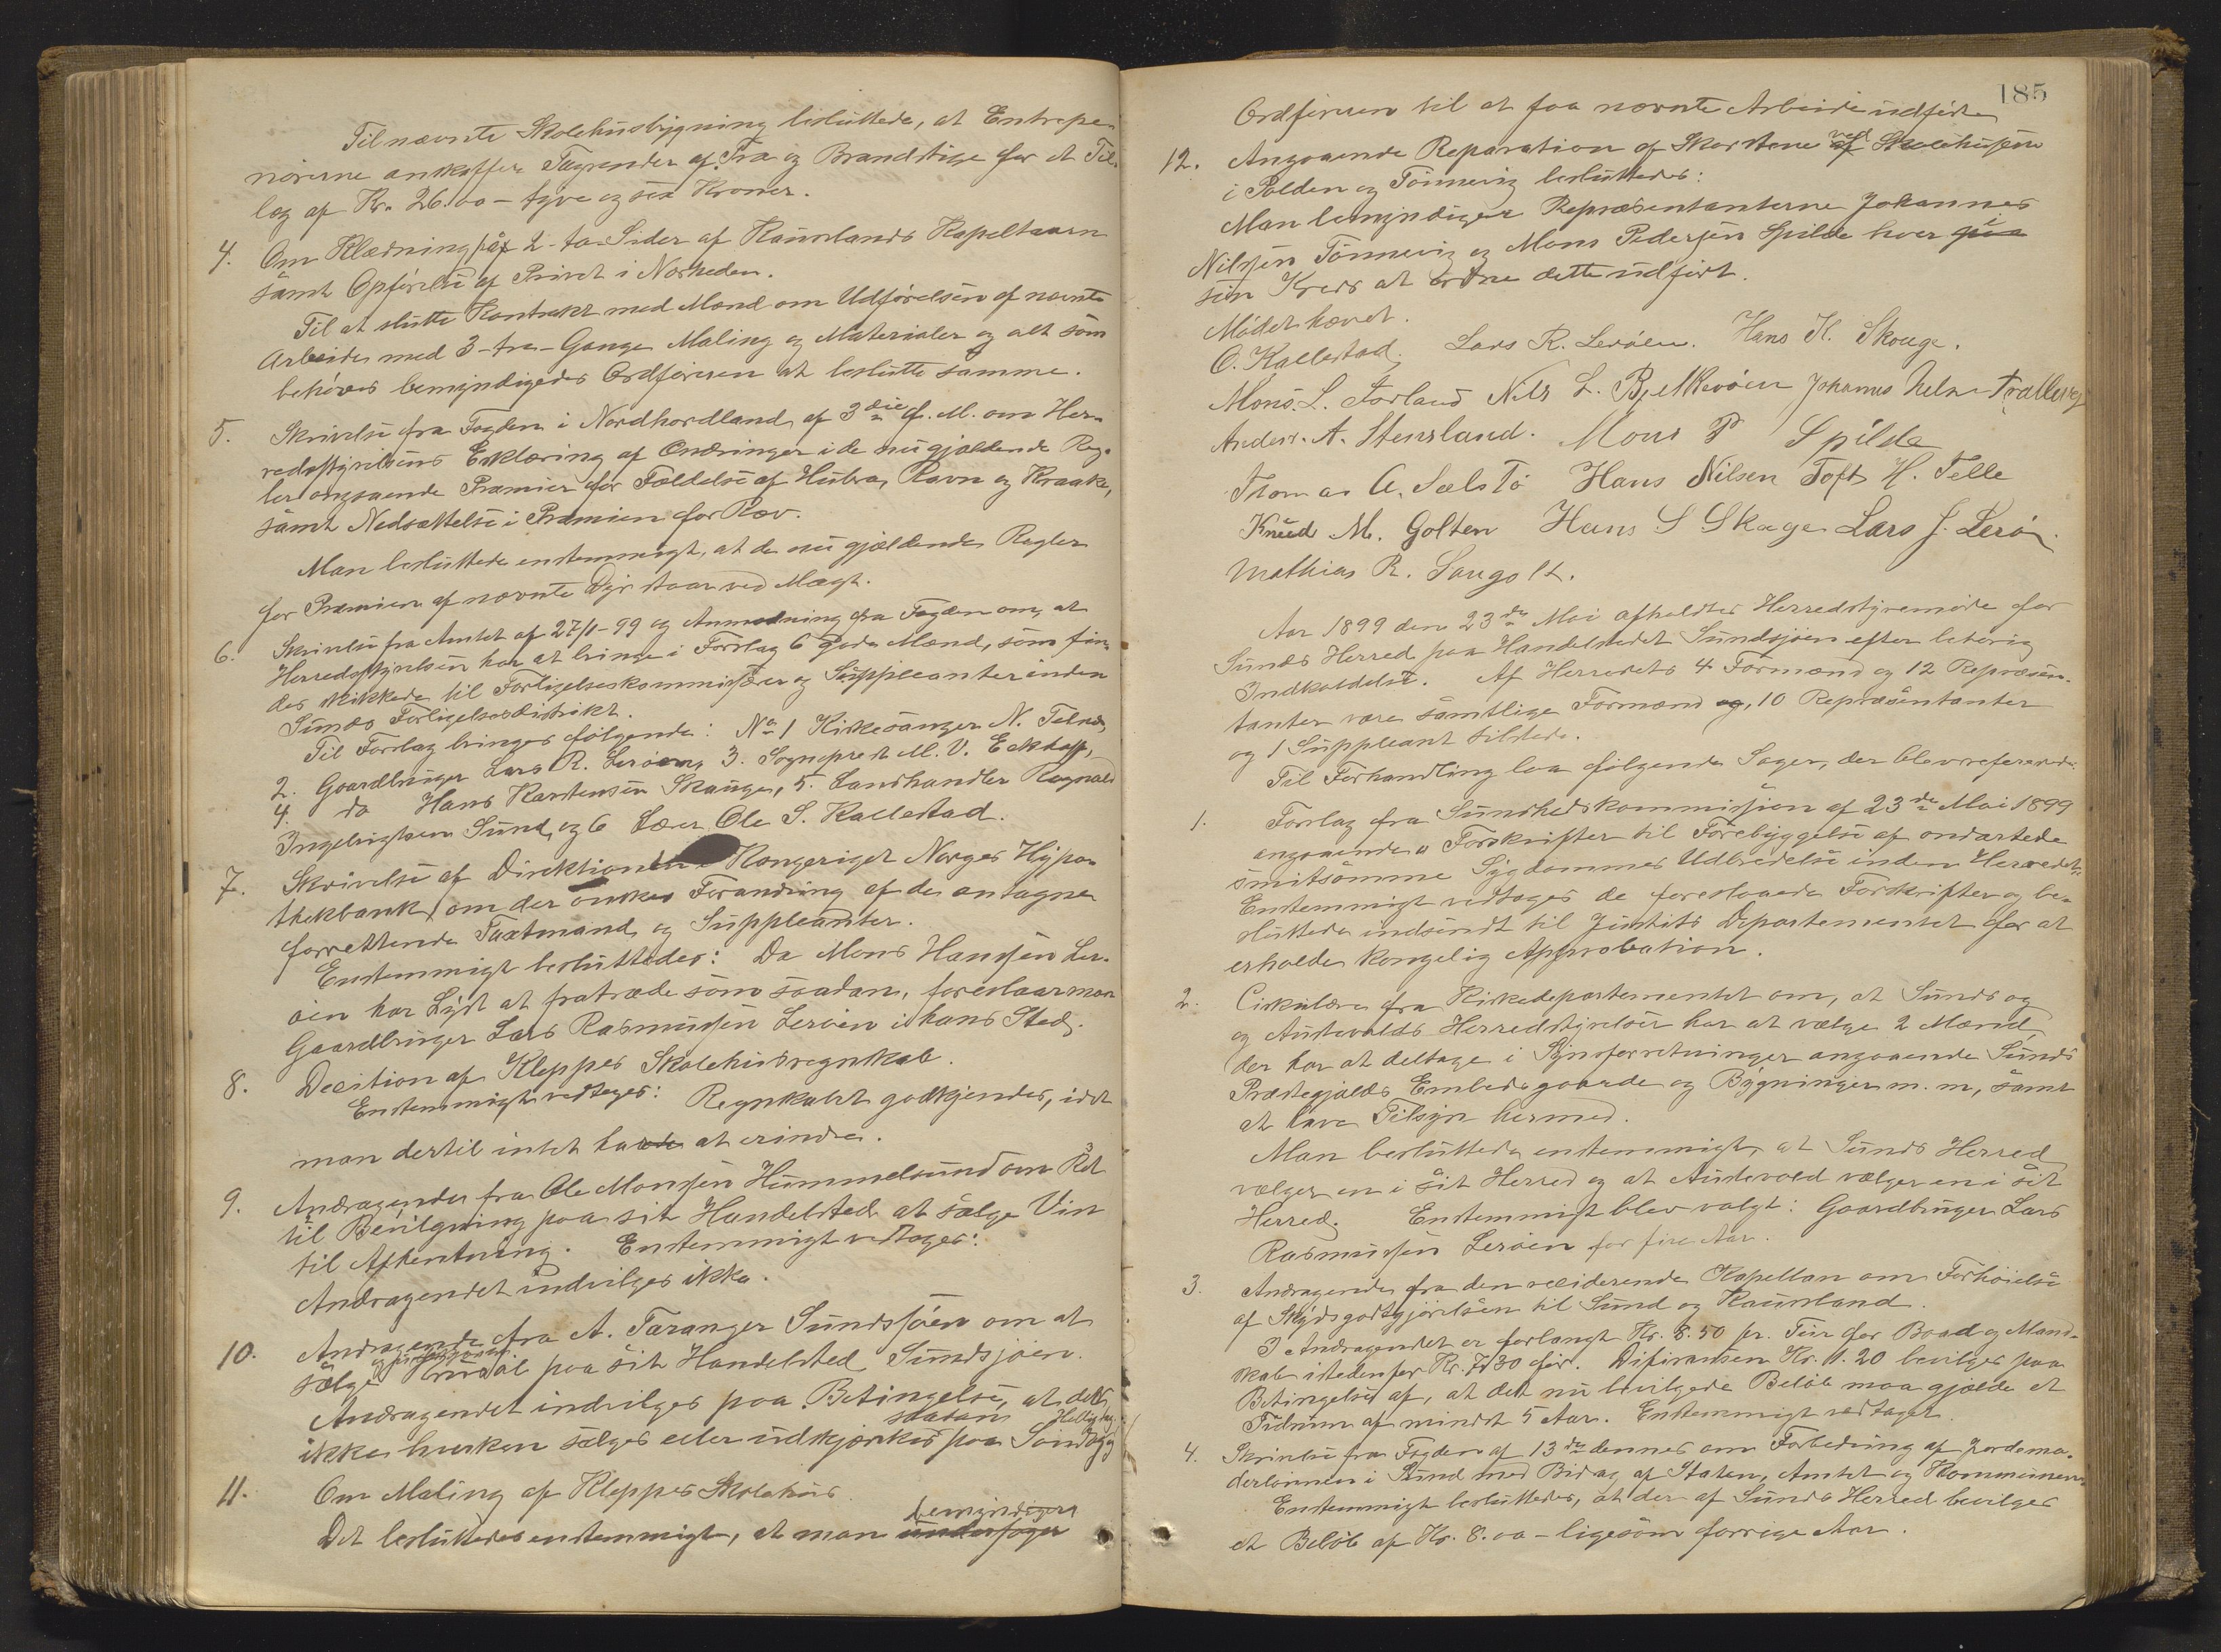 Til nævnte Skolehusbygning besluttede, at Entrepe-
nörerne anskaffer Tagrender af Træ og Brandstige for et Til-
læg af Kr. 26.00 - tyve og sex Kroner.
4. Om Klædning paa 2 - to - Sider af Kausland Kapeltaarn
samt Opförelse af Privet i Nærheden.
Til at slutte Kontrakt med Mænd om Udförelsen af nævnte
Arbeide med 3 - tre - Gange Maling og Materialer og alt som
behöves bemyndigedes Ordföreren at beslutte samme.
5. Skrivelse fra Fogden i Nordhordland af 3die f. M. om Her-
redsstyrelsens Erklæring af Ændringer i de nu gjældende Reg-
ler angaaende Præmier for Fældelse af Hubro, Ravn og Kraake,
samt Nedsættelse i Præmien for Ræv.
Man besluttede enstemmigt, at de nu gjældende Regler
for Præmien af nævnte Dyr staar ved Magt.
6. Skrivelse fra Amtet af 27/1-99 og Anmodning fra Fogden om, at
Herredsstyrelsen har at bringe i Forslag 6 gode Mænd, som fin-
des skikkede til Forligelseskommissærer og Suppleanter inden
Sunds Forligelsesdistrikt.
Til Forslag bringes fölgende: No 1 Kirkesanger N. Telnes,
2. Gaardbruger Lars R. Leröen, 3. Sogneprest M. V. Eckhoff,
4. do Hans Karstensen Skauge, 5. Landhandler Ragnald
Ingebrigtsen Sund, og 6 Lærer Ole S. Kallestad.
7. Skrivelse af Direktionen Kongeriget Norges Hypo-
thekbank, om der önskes Forandring af de antagne
forrettende Taxtmænd og Suppleanter.
Enstemmigt besluttedes: Da Mons Hanssen Ler-
öen har Lyst at fratræde som saadan, foreslaar man
Gaardbruger Lars Rasmussen Leröen i hans Sted.
8. Decition af Kleppes Skolehusregnskab.
Enstemmigt vedtages: Regnskabet godkjendes, idet
man dertil intet havde at erindre.
9. Andragende fra Ole Monssen Hummelsund om Ret
til Bevilgning paa sit Handelsted at sælge Vin
til Afhentning. Enstemmigt vedtages:
Andragendet indvilges ikke.
10. Andragende fra A. Taranger Sundsjöen om at
sælge Krusöl paa sit Handelsted Sundsjöen.
Andragendet indvilges paa Betingelse, at det
saadan Helligdag
ikke hverken sælges eller udskjænkes paa Söndag og
11. Om Maling af Kleppes Skolehus.
bemyndiger
Det besluttedes enstemmigt, at man undersöger
185
Ordföreren til at faa nævnte Arbeide udförte
12. Angaaende Reparation af Skorstene ved Skolehusene
i Polden og Tönnevig besluttedes:
Man bemyndiger Repræsentanterne Johannes
Nilssen Tönnevig og Mons Pedersen Spilde hver
sin Kreds at ordne dette udfört.
Mödet hævet.
O. Kallestad. Lars R. Leröen. Hans K. Skouge.
Mons. L. Forland Nils L. Bjelkeröen Johannes Nelsen
Anders. A. Stensland. Mons P Spilde
Tomas A. Selstö Hans Nilsen Toft H. Telle
Knud M. Golten Hans S Skage Lars J. Lerö.
Mathias R. Sangolt.
Aar 1899 den 23de Mai afholdtes Herredstyremöde for
Sunds Herred paa Handelstedet Sundsjöen efter lovlig
Indkaldelse. Af Herredets 4 Formænd og 12 Repræsen-
tanter vare samtlige Formænd og, 10 Repræsentanter
og 1 Suppleant tilstede.
Til Forhandling laa fölgende Sager, der blev refererede:
1. Forslag fra Sundhedskommissjon af 23de Mai 1899
angaaende "Forskrifter til Forebyggelse af ondartede
smitsomme Sygdommes Udbredelse inden Herredet.
Enstemmigt vedtoges de foreslaaede Forskrifter og be-
sluttede indsendt til Justits Departementet for at
erholde kongelig Approbation.
2. Cirkulære fra Kirkedepartementet om, at Sunds og
og Austevolds Herredstyrelser har at vælge 2 Mænd,
der har at deltage i Synsforretninger angaaende Sunds
Prestegjælds Embedsgaarde og Bygninger m. m, samt
at have Tilsyn hermed.
Man besluttede enstemmigt, at Sunds Herred
vælger en i sit Herred og at Austevold vælger en i sit
Herred. Enstemmigt blev valgt: Gaardbruger Lars
Rasmussen Leröen for fire Aar.
3. Andragende fra den residerende Kapellan om Forhöielse
af Skydsgodtgjörelsen til Sund og Kausland.
I Andragendet er forlangt Kr. 8.50 pr. Tur for Baad og Mand-
skab istedenfor Kr. 7.30 för. Difiransen Kr. 1.20 bevilges paa
Betingelse af, at det nu bevilgede Belöb maa gjælde et
Tidsrum af mindst 5 Aar. Enstemmigt vedtaget.
4. Skrivelse fra Fogden af 13de dennes om Forbedring af Jordemo-
derlönnen i Sund med Bidrag af Staten, Amtet og Kommunen.
Enstemmigt besluttedes, at der af Sunds Herred bevilges
et Belöb af Kr. 8.00 - ligesom forrige Aar.